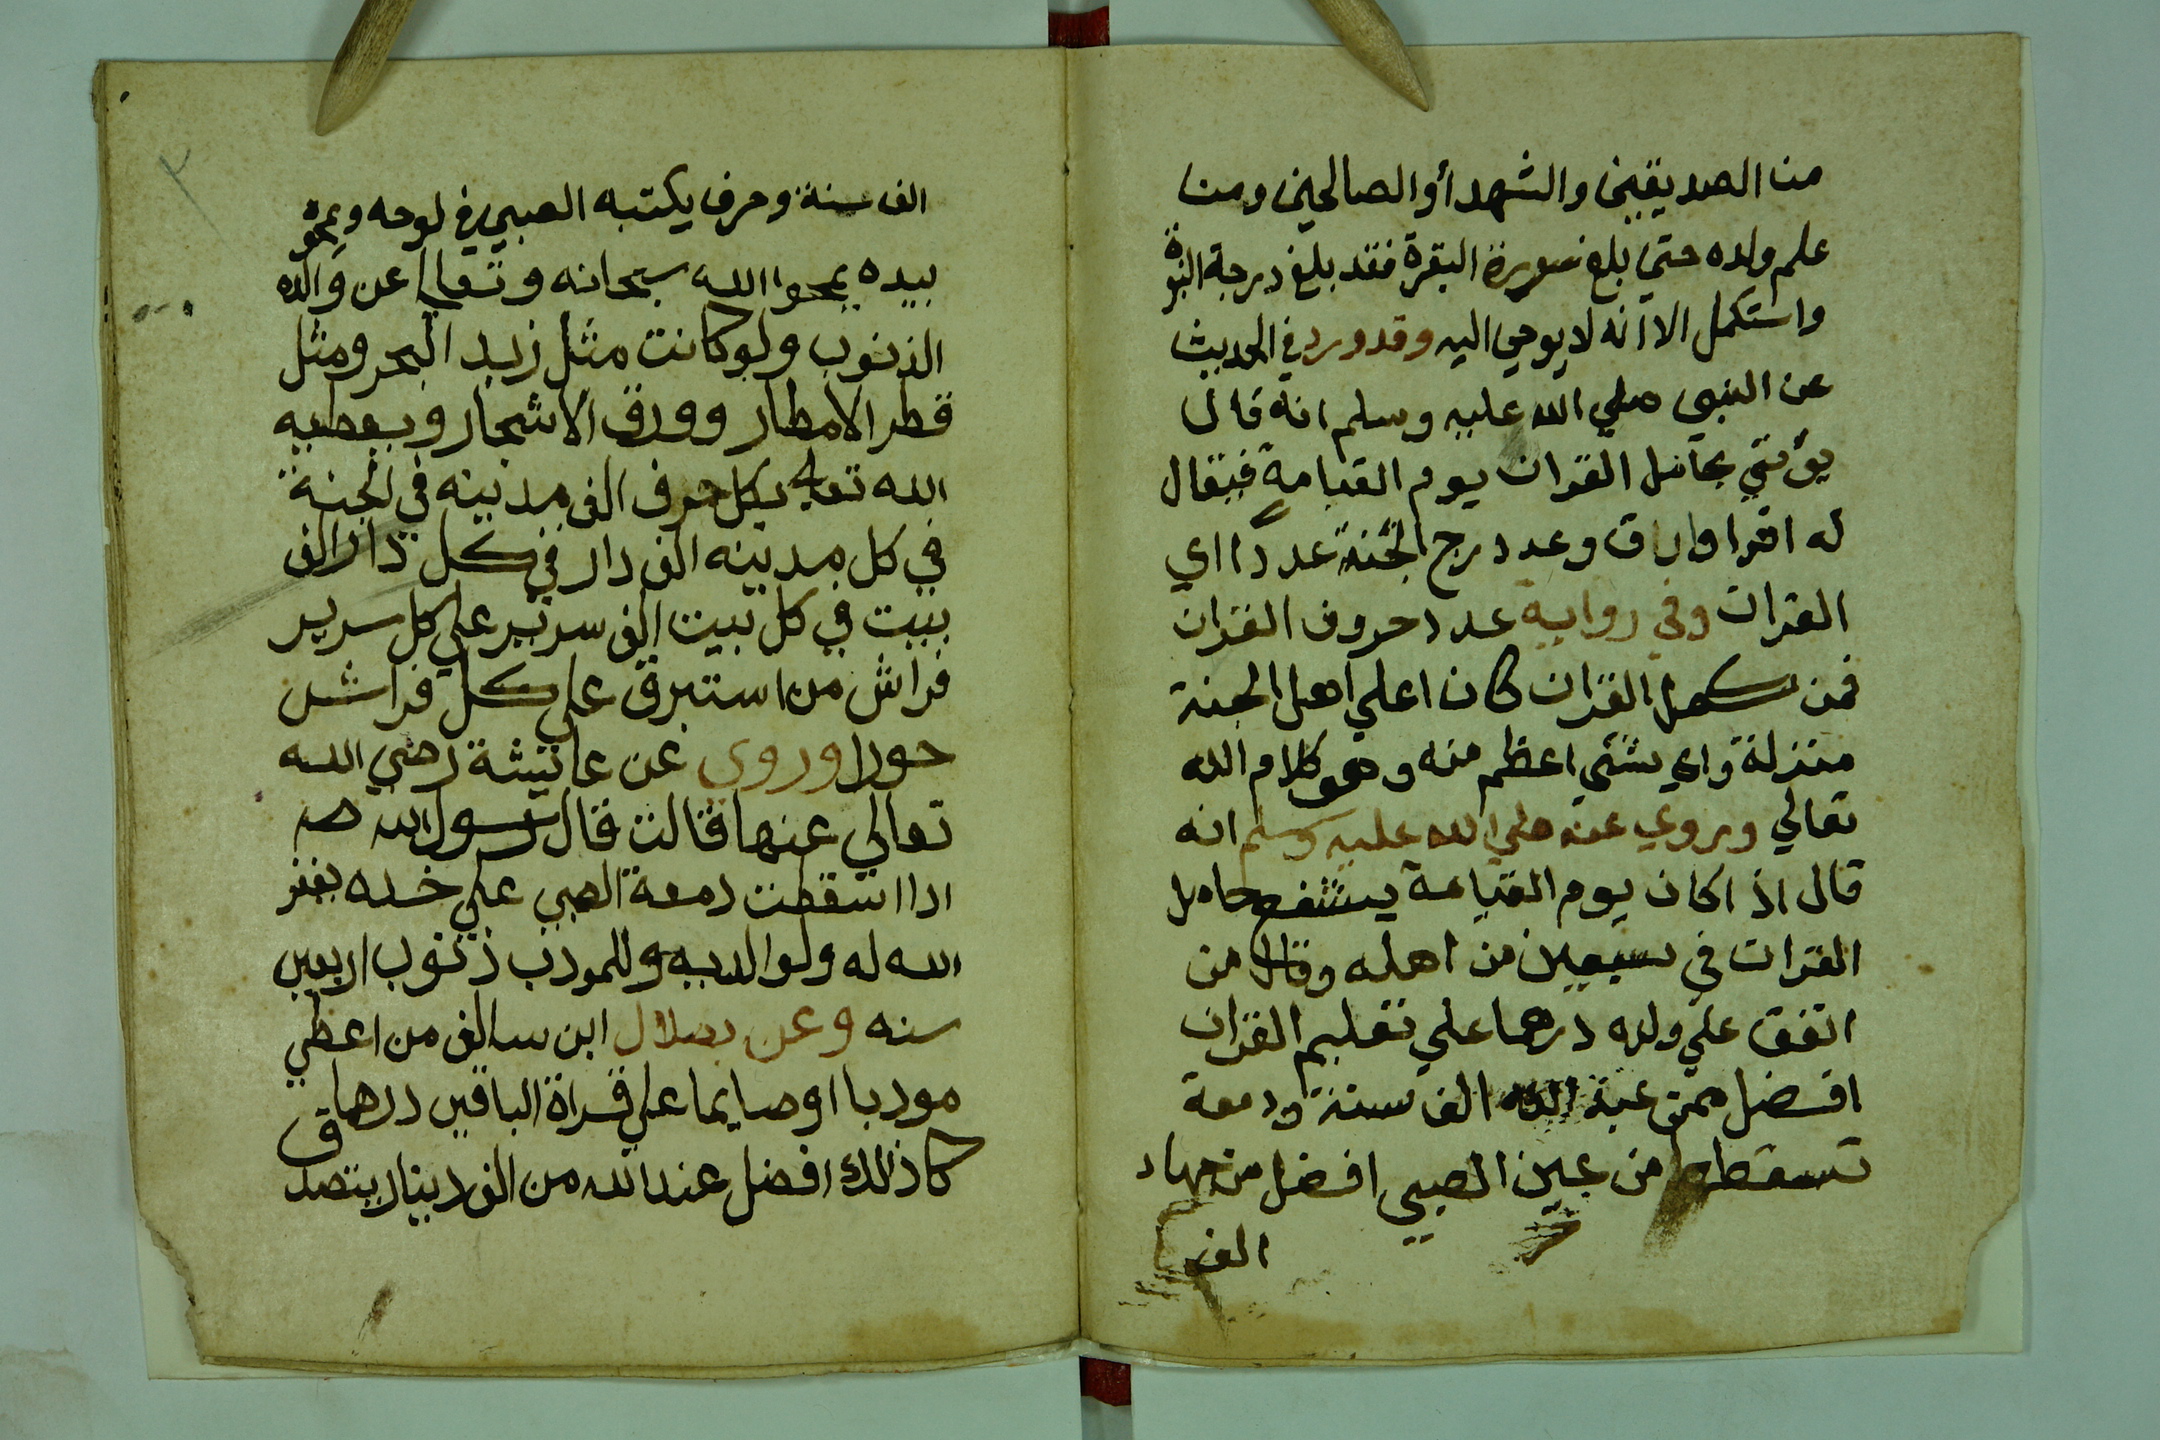 من الصديقين والشهدأ والصالحين ومن
علم ولده حتي بلغ سورة البقرة فقد بلغ درجة النبوة
واستكمل الا انه لا يوحي اليه وقد ورد في الحديث
عن النبي صلي الله عليه وسلم انه قال
يؤتي بحامل القران يوم القيامة فيقال
له اقرا وارق وعدد درج الجنة عدد اي
القران وفي رواية عدد حروف القران
فمن كمل القران كان اعلي اهل الجنة
منزلة واي شئي اعظم منه وهو كلام الله
تعالي وروي عنه صلي الله عليه وسلم انه
قال اذا كان يوم القيامة يشفع حامل
القران في سبعين من اهله وقال من
انفق علي ولده درهما علي تعليم القران
افضل ممن عبد الله الف سنة ودمعة
تسقط من عين الصبي افضل من جهاد
الف
الف سنة وحرف يكتبه الصبي في لوحه ويمحوه
بيده يمحوا الله سبحانه وتعالي عن والده
الذنوب ولو كانت مثل زبد البحر ومثل
قطر الامطار وورق الاشجار ويعطيه
الله تعالي بكل حرف الف مدينه في الجنة
في كل مدينه الف دار في كل دار الف
بيت في كل بيت الف سرير علي كل سرير
فراش من استبرق علي كل فراش
حورا وروي عن عائيشة رضي الله
تعالي عنها قالت قال رسول الله صـ
اذا اسقطت دمعة الصبي علي خده يغفر
الله له ولوالديه وللمودب ذنوب اربعين
سنه وعن بصلال ابن سالف من اعطي
مودبا اوصايما علي قراة الباقين درهما
كاذالك افضل عند الله من الف دينار يتصدق
٢